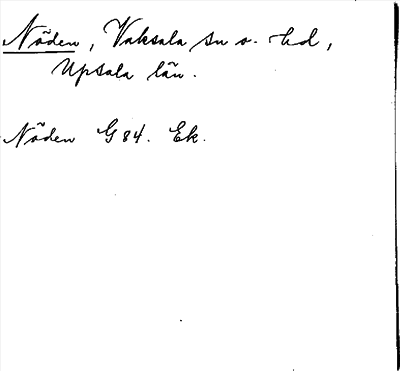 Nöden, Vaksala sn o. hd,
Upsala län.
Nöden G 84. Ek.